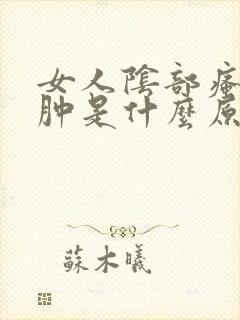 女人陰部瘙
肿是什麼原
蘇木曦